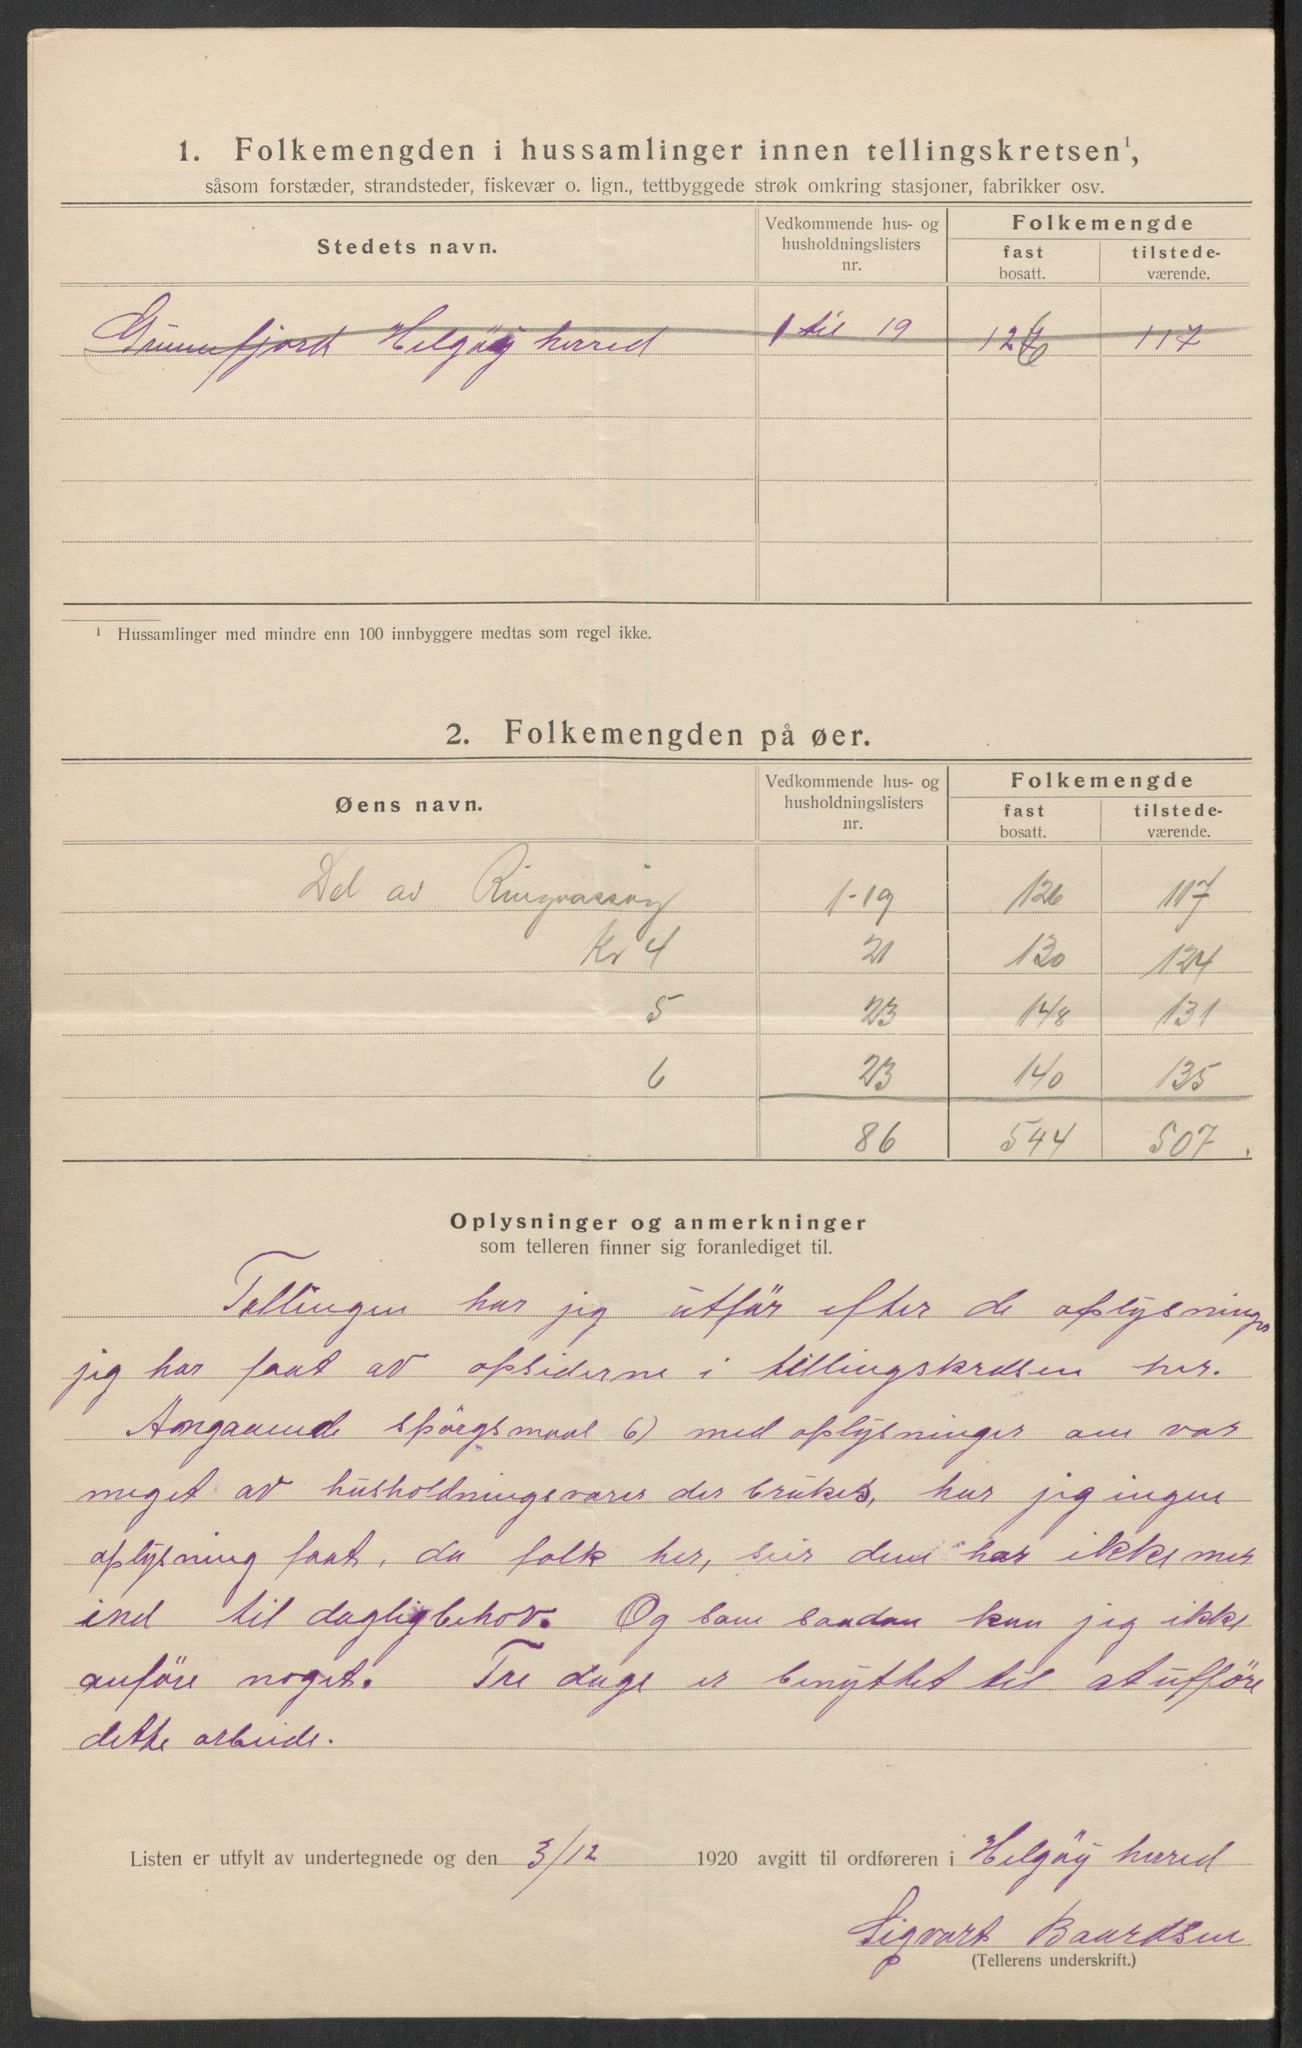 1. Folkemengden i hussamlinger innen tellingskretsen¹,
såsom forstæder, strandsteder, fiskevær o. lign., tettbyggede strøk omkring stasjoner, fabrikker osv.
Stedets navn.
Vedkommende hus- og husholdningslisters nr.
Folkemengde
fast bosatt.
tilstede- værende.
Grunnfjord Helgöÿ herred 1 til 19 126 117
¹ Hussamlinger med mindre enn 100 innbyggere medtas som regel ikke.
2. Folkemengden på øer.
Øens navn.
Vedkommende hus- og husholdningslisters nr.
Folkemengde
fast bosatt.
tilstede- værende.
Del av Ringvassøy 1-19 126 117
Kr 4 21 130 124
5 23 148 131
6 23 140 135
86 544 507.
Oplysninger og anmerkninger
som telleren finner sig foranlediget til.
Tellingen har jeg utför efter de oplysninger
jeg har faat av opsiderne i tellingskretsen her.
Angaaende spörgsmaal 6) med oplysninger om var
meget av husholdningsvarer der brukes, har jeg ingen
oplysning faat, da folk her, seir dem har ikke mer
ind til dagligbehov. Og som saadan kan jeg ikke
anföre noget. Tre dage er benyttet til at utföre
dette arbeide.
Listen er utfylt av undertegnede og den 3/12 1920 avgitt til ordføreren i Helgöÿ herred
Sigvart Baardsen
(Tellerens underskrift.)